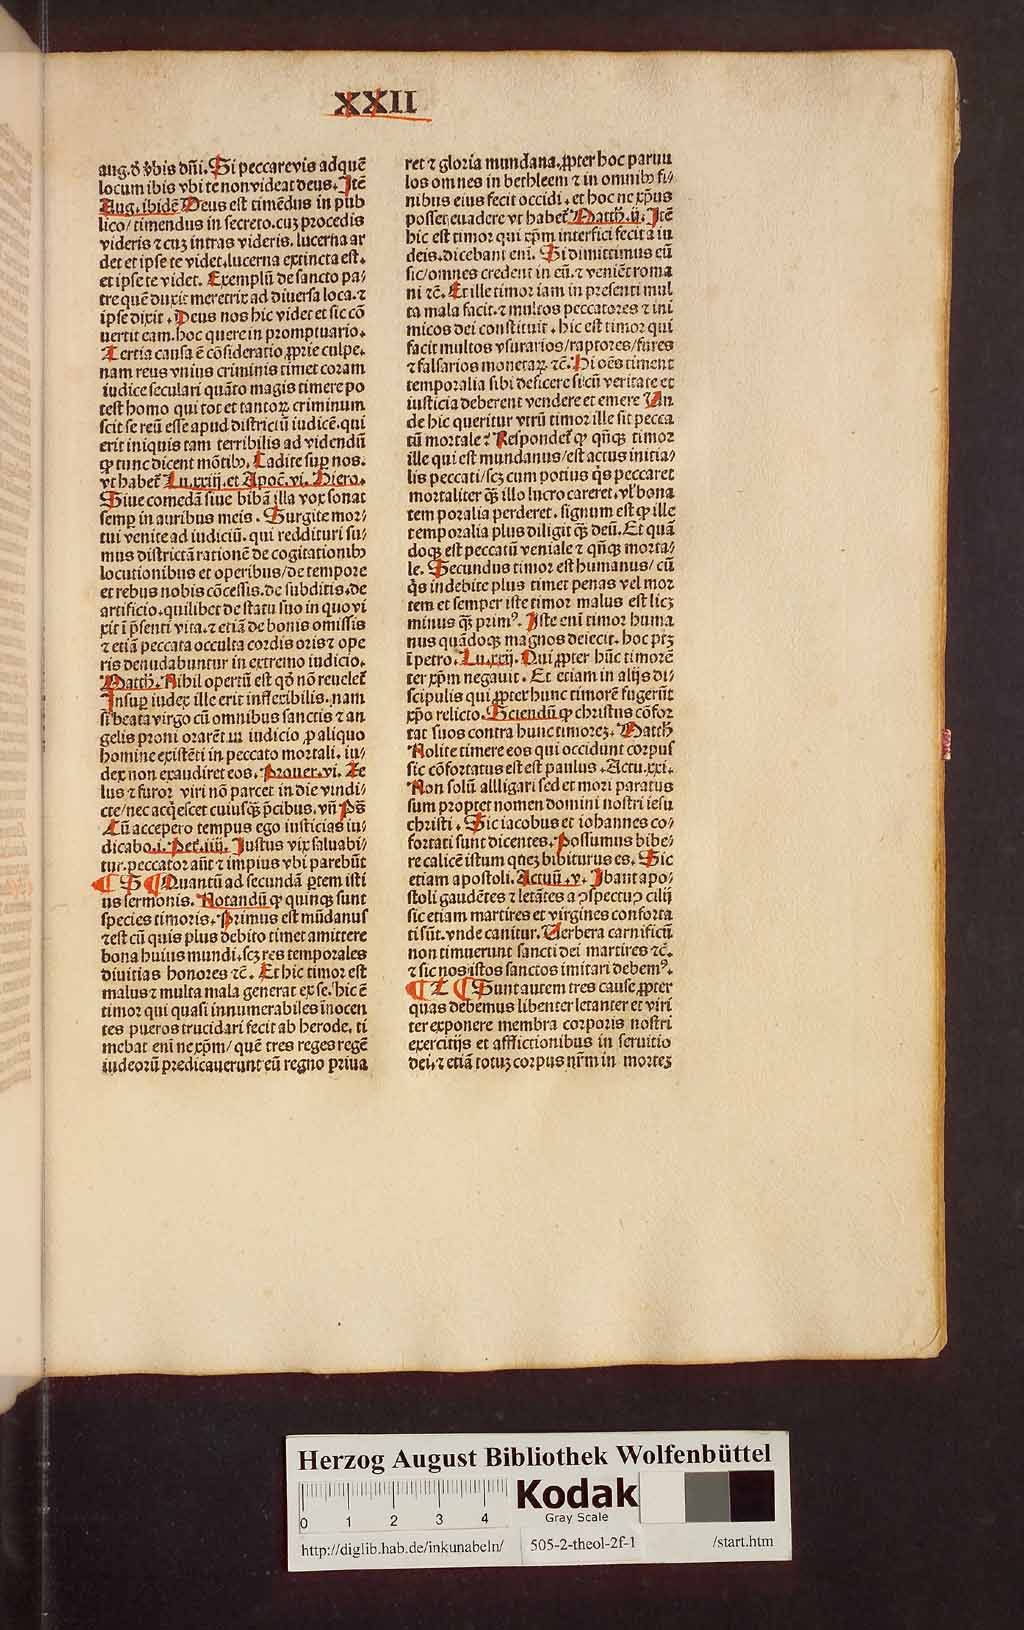 XXII
aug. ð v̄bis dñi. Si peccare vis ad quē
locum ibis vbi te non videat deus. Itē
Aug. ibidē Deus est timēdus in pub
lico/ timendus in secreto. cuȝ procedis
videris ⁊ cuȝ intras videris. lucerna ar
det et ipse te videt. lucerna extincta est.
et ipse te videt. Exemplū de sancto pa/
tre quē duxit meretrix ad diuersa loca. ⁊
ipse dixit. Deus nos hic videt et sic cō
uertit eam. hoc quere in promptuario.
Tertia causa ē cōsideratio ꝓprie culpe.
nam reus vnius criminis timet coram
iudice seculari quāto magis timere po
test homo qui tot et tantoꝝ criminum
scit se reū esse apud districtū iudicē. qui
erit iniquis tam terribilis ad videndū
ꝙ tunc dicent mōtibꝰ. Cadite suꝑ nos.
vt habet̄ Lu. xxiij. et Apoc̄. vi. Hiero.
Siue comedā siue bibā illa vox sonat
semꝑ in auribus meis. Surgite mor/
tui venite ad iudiciū. qui reddituri su/
mus districtā rationē de cogitationibꝰ
locutionibus et operibus/ de tempore
et rebus nobis cōcessis. de subditis. de
artificio. quilibet de statu suo in quo vi
xit ī p̄senti vita. ⁊ etiā de bonis omissis
⁊ etiā peccata occulta cordis oris ⁊ ope
ris denudabuntur in extremo iudicio.
Matth̄. Nihil opertū est qđ nō reuelet̄
Insuꝑ iudex ille erit inflexibilis. nam
si beata virgo cū omnibus sanctis ⁊ an
gelis proni orarēt in iudicio ꝓ aliquo
homine existēti in peccato mortali. iu/
dex non exaudiret eos. Prouer. vi. Ze
lus ⁊ furor viri nō parcet in die vindi/
cte/ nec acq̇escet cuiusꝗ̄ p̄cibus. vn̄ Ps̄
Cū accepero tempus ego iusticias iu/
dicabo. i. Pet̄. iiij. Iustus vix saluabi/
tur. peccator aūt ⁊ impius vbi parebūt
S Quantū ad secundā ꝑtem isti
us sermonis. Notandū ꝙ quinqꝫ sunt
species timoris. Primus est mūdanus
⁊ est cū quis plus debito timet amittere
bona huius mundi. scȝ res temporales
diuitias honores ⁊c̄. Et hic timor est
malus ⁊ multa mala generat ex se. hic ē
timor qui quasi innumerabiles īnocen
tes pueros trucidari fecit ab herode. ti
mebat enī ne xp̄m/ quē tres reges regē
iudeorū predicauerunt eū regno priua
ret ⁊ gloria mundana. ꝓpter hoc paruu
los omnes in bethleem ⁊ in omnibꝰ fi/
nibus eius fecit occidi. et hoc ne xp̄us
posset euadere vt habet̄ Matth̄. ij. Itē
hic est timor qui xp̄m interfici fecit a iu
deis. dicebant enī. Si dimittimus eū
sic/ omnes credent in eū. ⁊ veniēt roma
ni ⁊c̄. Et ille timor iam in presenti mul
ta mala facit. ⁊ multos peccatores ⁊ ini
micos dei constituit. hic est timor qui
facit multos vsurarios/ raptores/ fures
⁊ falsarios monetaꝝ ⁊c̄. Hi oēs timent
temporalia sibi deficere si cū veritate et
iusticia deberent vendere et emere Vn
de hic queritur vtrū timor ille sit pecca
tū mortale? Respondet̄ ꝙ qn̄qꝫ timor
ille qui est mundanus/ est actus initia/
lis peccati/ scȝ cum potius q̇s peccaret
mortaliter ꝗ̄ illo lucro careret. vl' bona
temporalia perderet. signum est ꝙ ille
temporalia plus diligit ꝗ̄ deū. Et quā
doqꝫ est peccatū veniale ⁊ qn̄qꝫ morta/
le. Secundus timor est humanus/ cū
q̇s indebite plus timet penas vel mor
tem et semper iste timor malus est licȝ
minus ꝗ̄ primꝰ. Iste enī timor huma
nus quādoqꝫ magnos deiecit. hoc ptȝ
ī petro. Lu. xxij. Qui ꝓpter hūc timorē
ter xp̄m negauit. Et etiam in alijs di/
scipulis qui ꝓpter hunc timorē fugerūt
xp̄o relicto. Sciendū ꝙ christus cōfor
tat suos contra hunc timoreȝ. Matth̄
Nolite timere eos qui occidunt corpus
sic cōfortatus est est paulus. Actu. xxi.
Non solū allligari sed et mori paratus
sum proptet nomen domini nostri iesu
christi. Sic iacobus et iohannes co/
fortati sunt dicentes. Possumus bibe/
re calicē istum queȝ bibiturus es. Sic
etiam apostoli. Actuū. v. Ibant apo/
stoli gaudētes ⁊ letātes a ꝯspectu ꝯcilij
sic etiam martires et virgines conforta
ti sūt. vnde canitur. Verbera carnificū
non timuerunt sancti dei martires ⁊c̄.
⁊ sic nos istos sanctos imitari debemꝰ.
T Sunt autem tres cause ꝓpter
quas debemus libenter letanter et viri
ter exponere membra corporis nostri
exercitijs et afflictionibus in seruitio
dei. ⁊ etiā totuȝ corpus nr̄m in morteȝ
Herzog August Bibliothek Wolfenbüttel
Kodak
Gray Scale
0 1 2 3 4
http://diglib.hab.de/inkunabeln/ 505-2-theol-2f-1 /start.htm